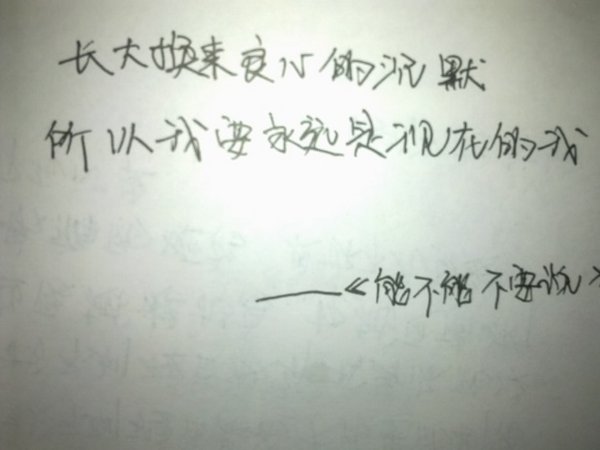 长大换来良心的沉默
所以我要永远是现在的我
——《能不能不要说》